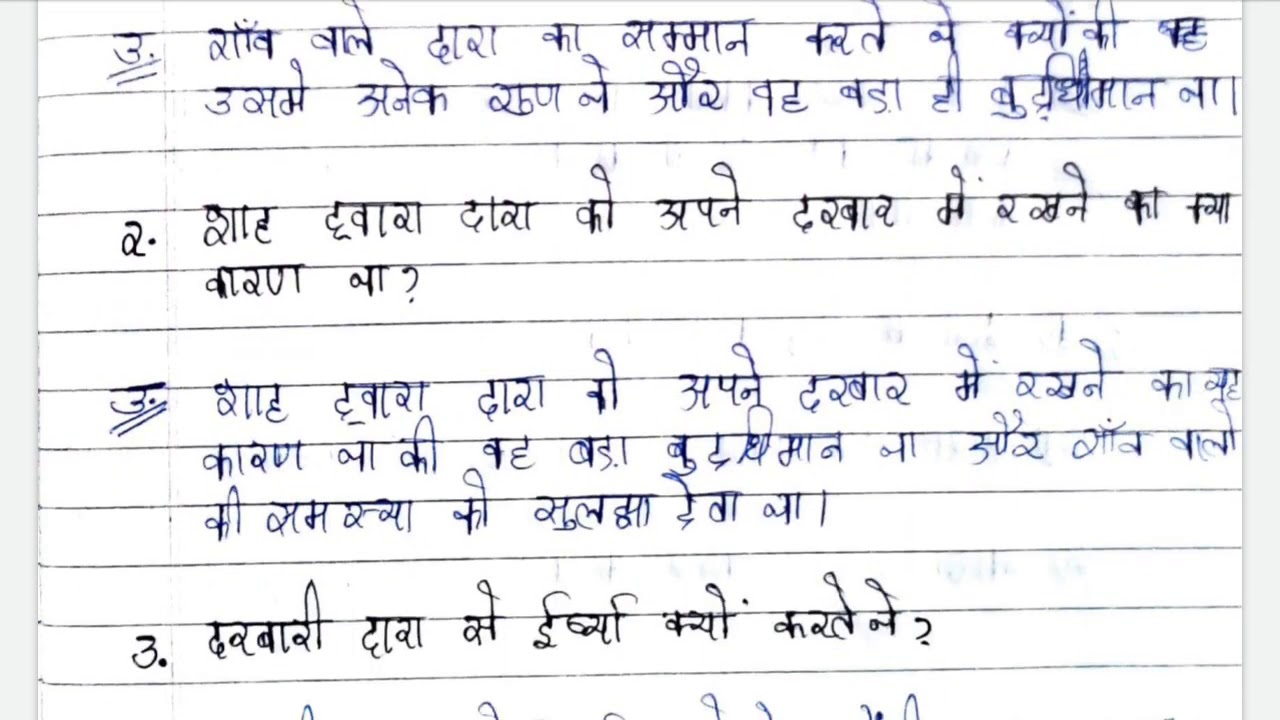 उ. गाँव वाले दारा का सम्मान करते थे क्योंकी वह
उसमे अनेक गुण थे और वह बड़ा ही बुद्धीमान था।
२. शाह द्वारा दारा को अपने दरबार में रखने का क्या
कारण था?
उ. शाह द्वारा दारा को अपने दरबार में रखने का यह
कारण था की वह बड़ा बुद्धिमान था और गाँव वालो
की समस्या को सुलझा देता था।
३. दरबारी दारा से ईर्ष्या क्यों करते थे?